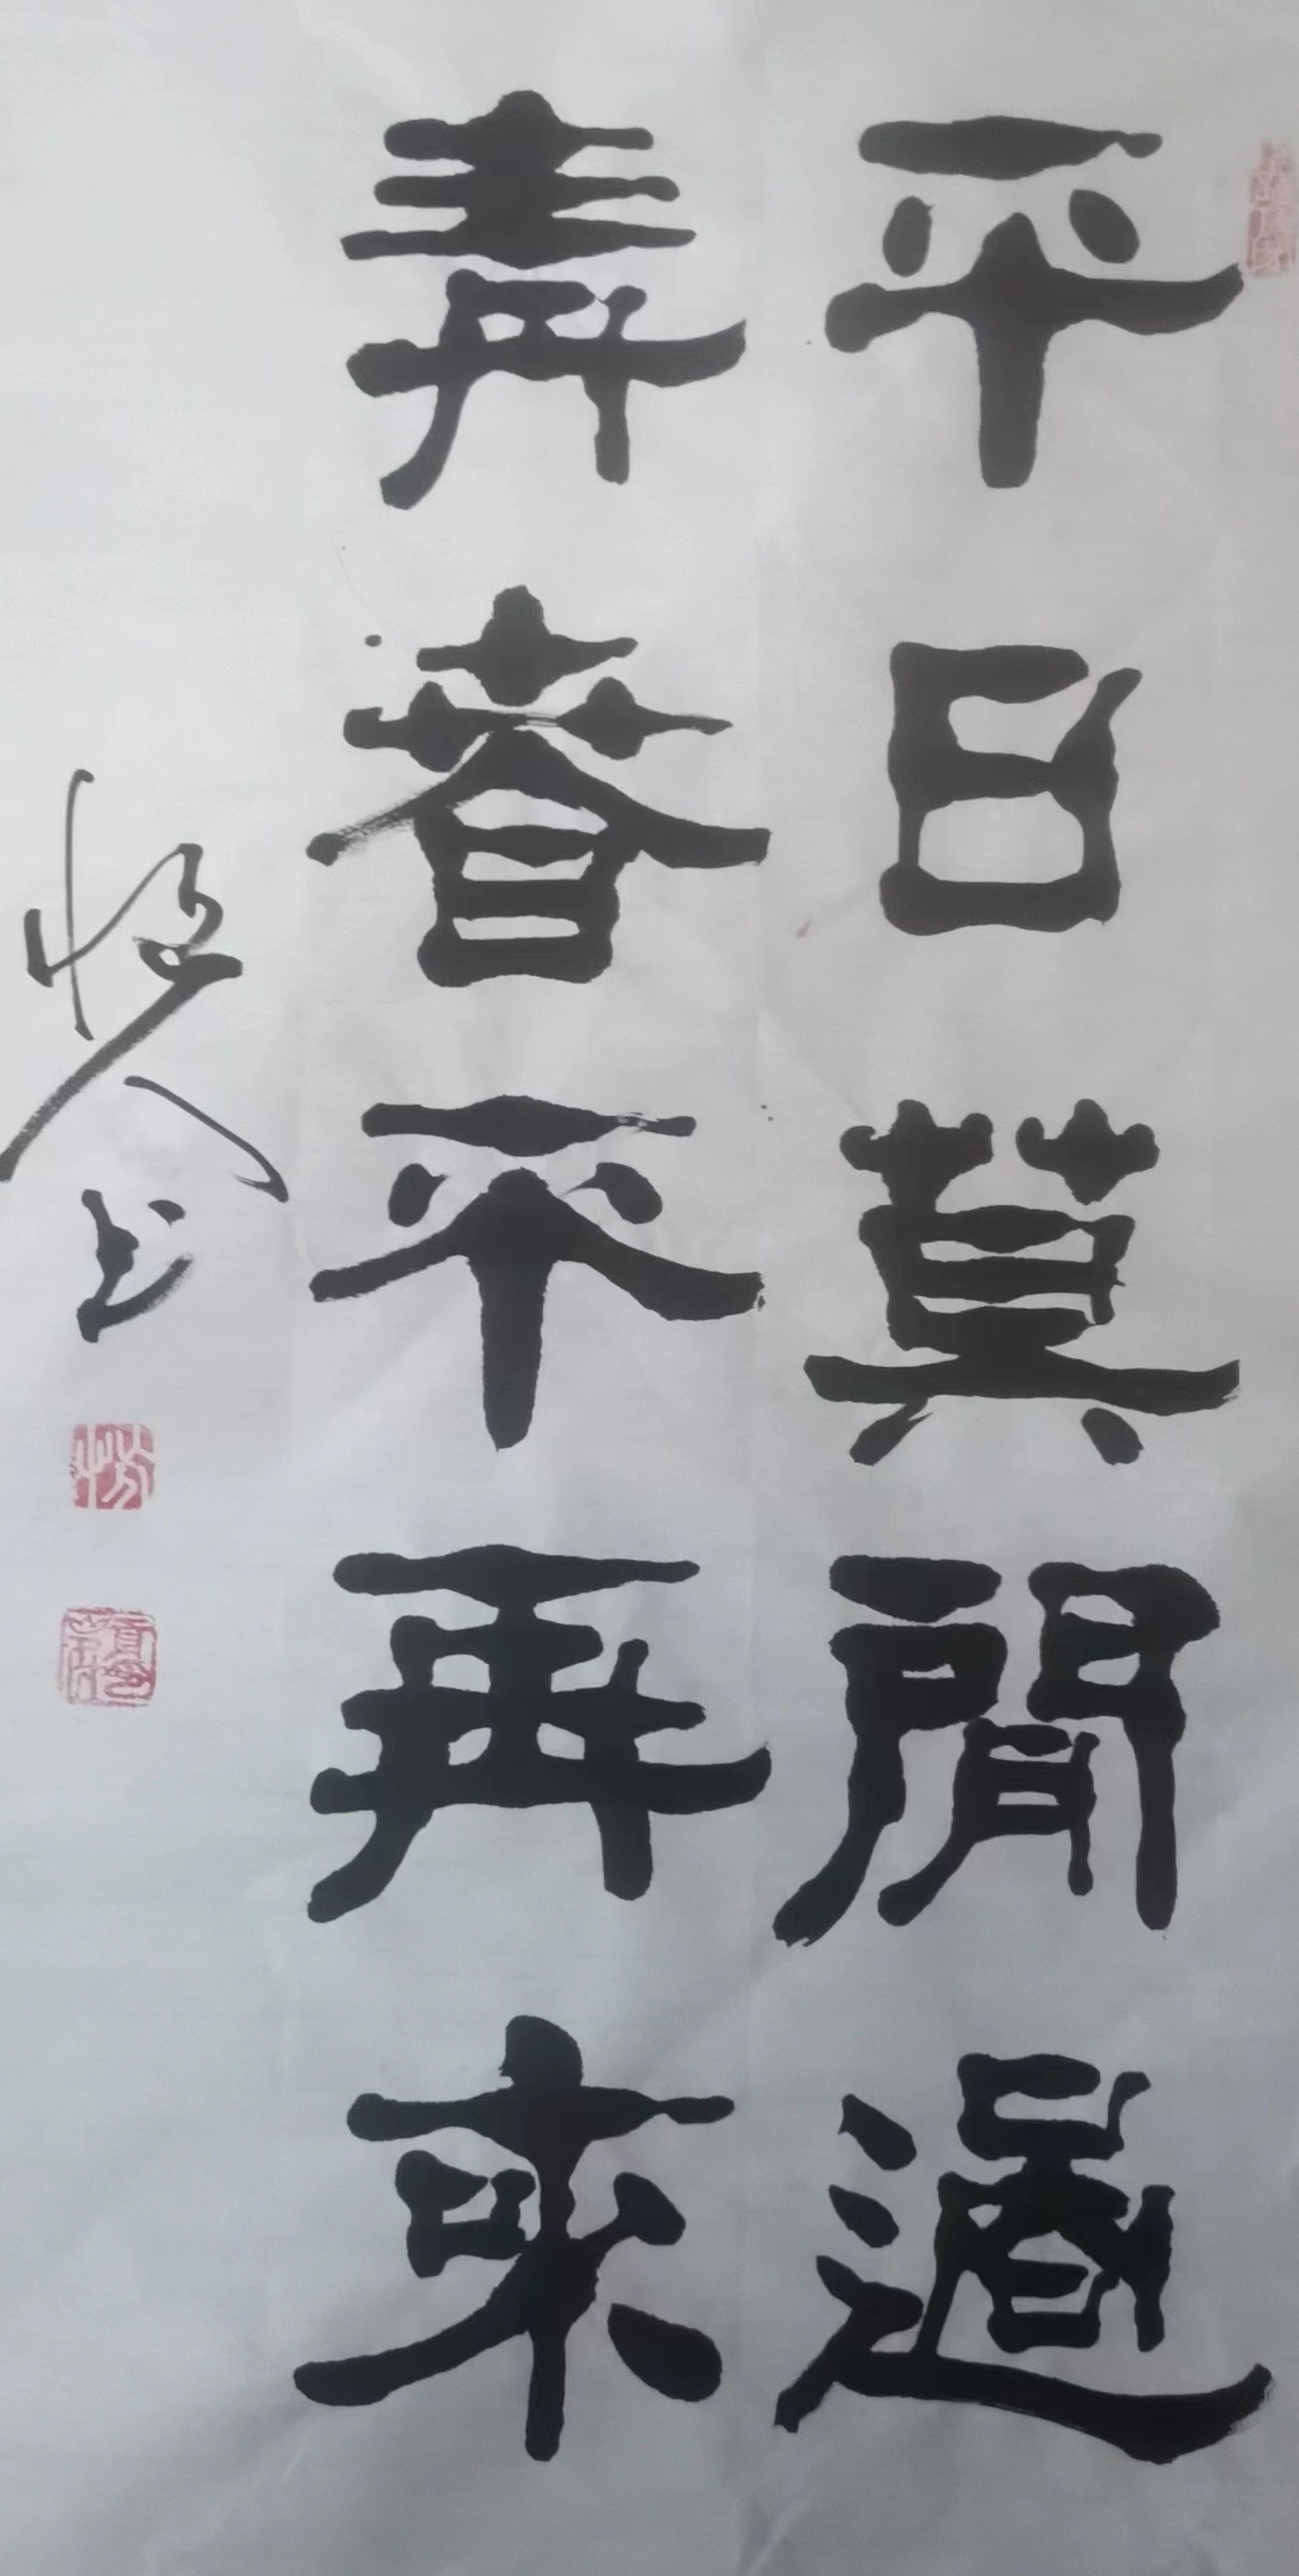 平日莫閒過
青春不再來
书